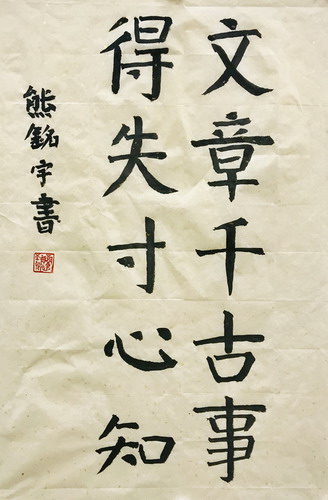 文章千古事
得失寸心知
熊銘宇書